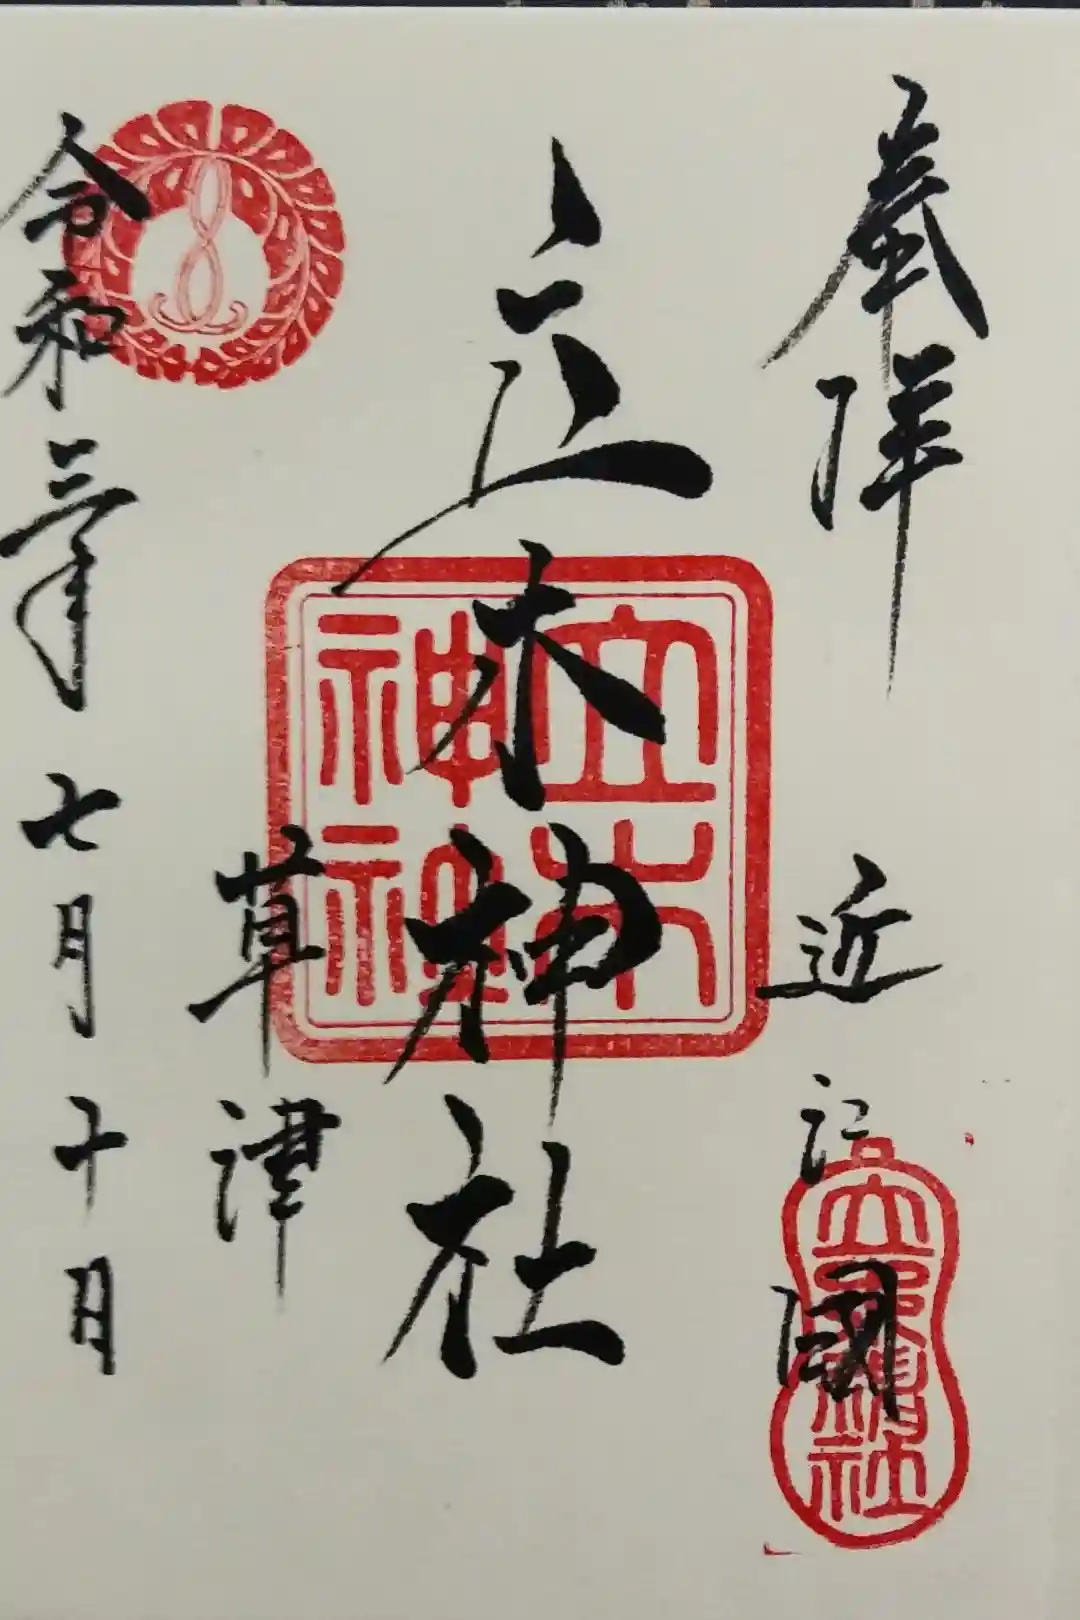 奉拝
近江國
立木神社
立木
神社
草津
令和三年七月十日